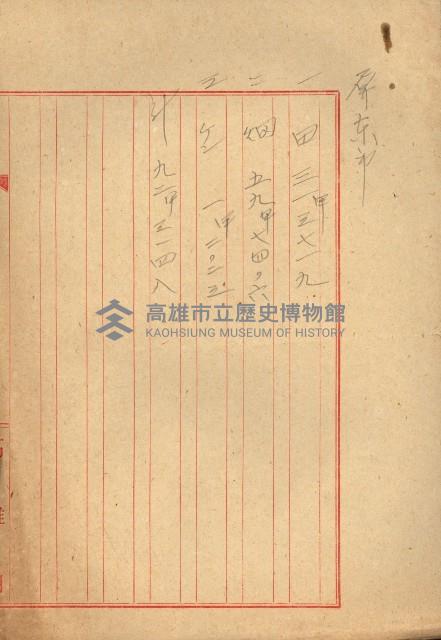 屏东
一 田 三一甲三七一九
二 畑 五九甲七四〇六
三 一甲二〇二三
計 九二甲三一四八
高雄市立歷史博物館
KAOHSIUNG MUSEUM OF HISTORY